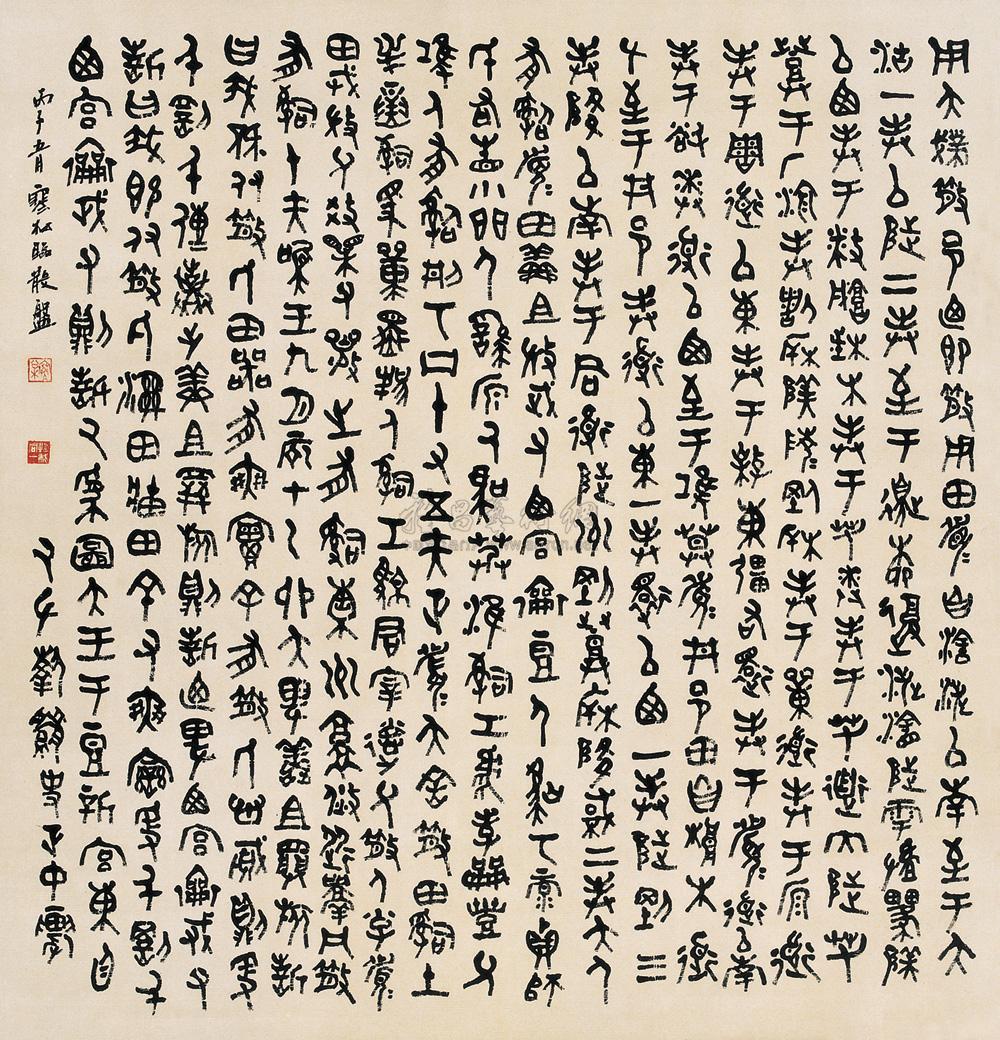 用夨撲散邑迺即散用田眉自瀗涉以南至于大
沽一封以陟二封至于邊柳復涉瀗陟雩
以西封于播城楮木封于芻逨封于芻道內陟芻
登于厂湶封諸𣏟陵陵剛𣏟封于單道封于原道
封于周道以東封于東彊右還封于眉道以南
封于逨道以西至于鴻莫眉井邑田自桹木道
左至于井邑封道以東一封還以西一封陟剛三
封降以南封于同道陟州剛登𣏟降棫二封夨人
有司眉田鮮且微武父西宮襄豆人虞丂彔貞師
氏右眚小門人繇原人虞艿淮司工虎孝龠豐父
鴻人有司刑丂凡十又五夫正眉夨舍散田司土
逆寅司馬單邦人司工駷君宰德父散人小子眉
田戎微父效父襄之有司橐州京焂從凡散
有司十夫唯王九月辰在乙卯夨俾鮮且旅誓
曰我既付散氏田器有爽實余有散氏心賊則爰
千罰千傳棄之鮮且旅則誓迺俾西宮襄武父
誓曰我既付散氏濕田牆田余有爽變爰千罰千
西宮襄武父則誓厥受圖夨王于豆新宮東廷
厥左執要史正中農
丙子五月 臨散盤